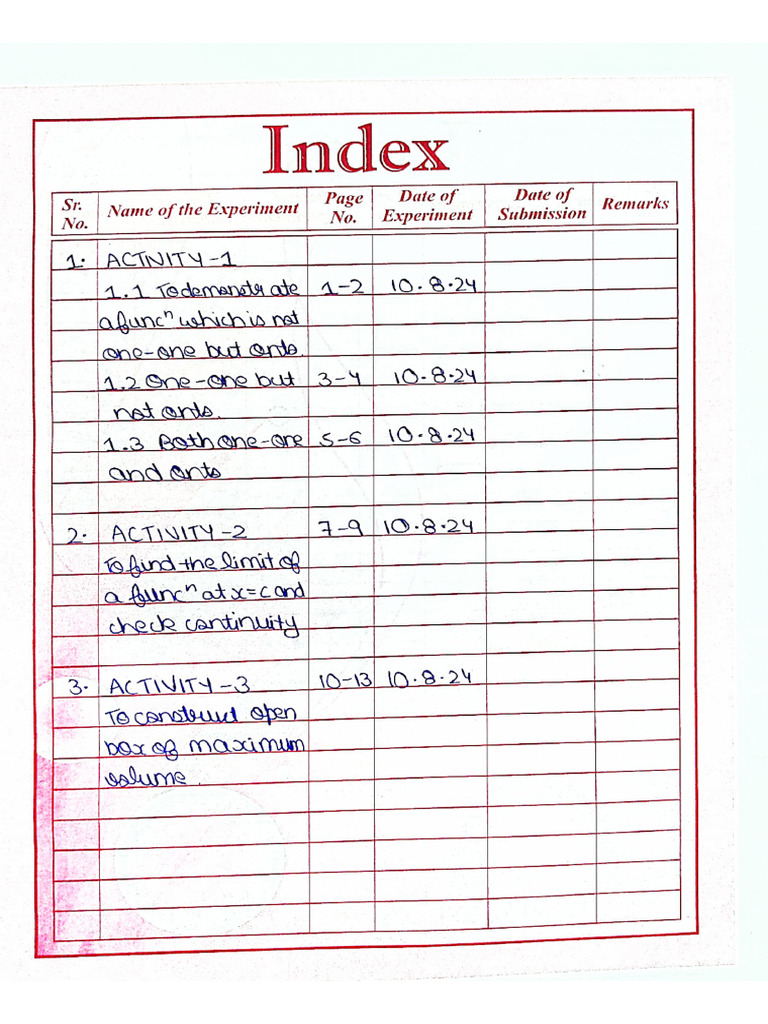 Index
Sr. No. Name of the Experiment Page No. Date of Experiment Date of Submission Remarks
1. ACTIVITY-1
1.1 To demonstrate 1-2 10.8.24
a funcⁿ which is not
one-one but onto.
1.2 One-one but 3-4 10.8.24
not onto.
1.3 Both one-one 5-6 10.8.24
and onto
2. ACTIVITY-2 7-9 10.8.24
To find the limit of
a funcⁿ at x=c and
check continuity
3. ACTIVITY-3 10-13 10.8.24
To construct open
box of maximum
volume.